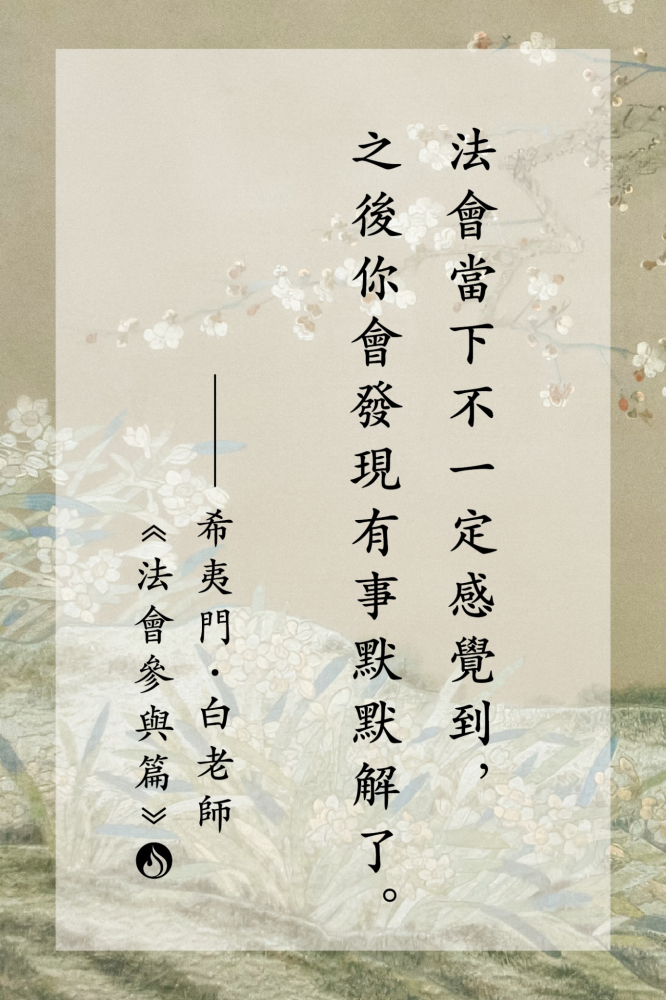 法會當下不一定感覺到，
之後你會發現有事默默解了。
——希夷門·白老師
《法會參與篇》